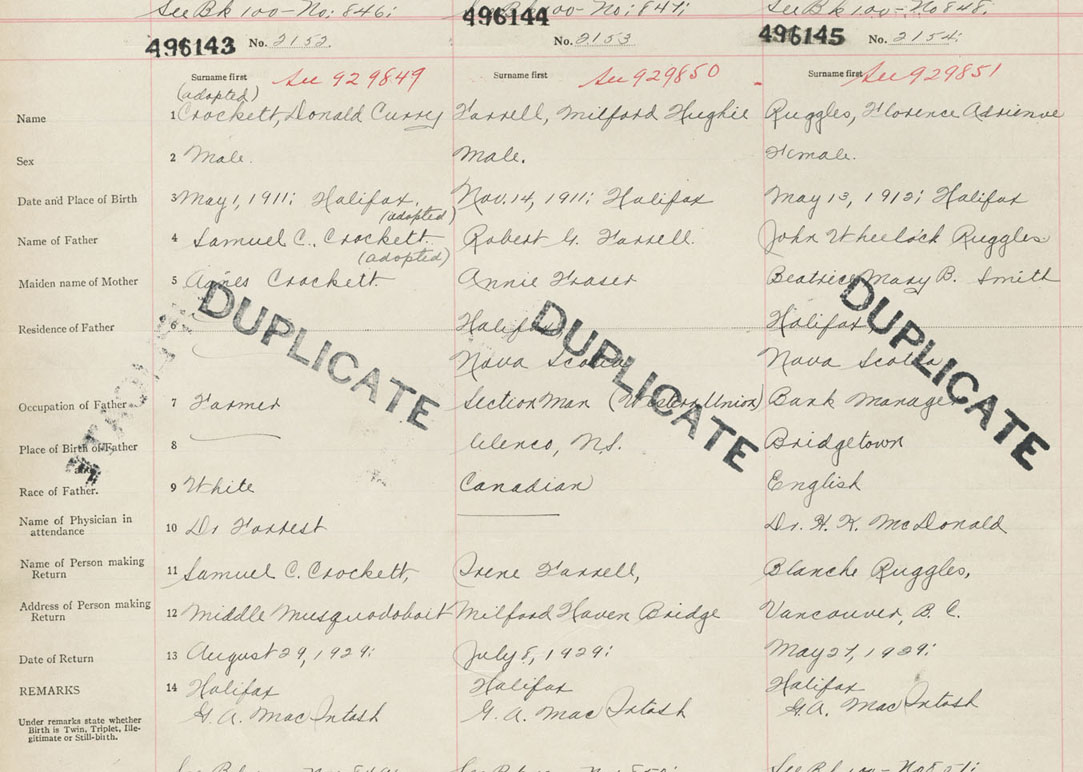 See Bk 100 - No: 846; See Bk 100 - No: 847; See Bk 100 - No 848;
496143 No. 2152. 496144 No. 2153 496145 No. 2154;
Surname first See 929849 Surname first See 929850 Surname first See 929851
(adopted)
Name 1 Crockett, Donald Curry Farrell, Milford Hughie Ruggles, Florence Adrienne
Sex 2 Male. Male. Female.
Date and Place of Birth 3 May 1, 1911; Halifax. Nov. 14, 1911; Halifax May 13, 1912; Halifax
(adopted)
Name of Father 4 Samuel C. Crockett. Robert G. Farrell. John Wheelock Ruggles
(adopted)
Maiden name of Mother 5 Agnes Crockett. Annie Fraser Beatrice Mary B. Smith
DUPLICATE DUPLICATE DUPLICATE
Residence of Father 6 Halifax Halifax
Nova Scotia Nova Scotia
Occupation of Father 7 Farmer Section Man (Western Union) Bank Manager
Place of Birth of Father 8 N.S. Bridgetown
and
Race of Father. 9 White Canadian English
Name of Physician in
attendance 10 Dr Forrest Dr. H. K. McDonald
Name of Person making
Return 11 Samuel C. Crockett, Irene Farrell, Blanche Ruggles,
Address of Person making
Return 12 Middle Musquodoboit Milford Haven Bridge Vancouver, B. C.
Date of Return 13 August 29, 1929; July 8, 1929; May 27, 1929;
REMARKS 14 Halifax Halifax Halifax
G. A. MacIntosh G. A. MacIntosh G. A. MacIntosh
Under remarks state whether
Birth is Twin, Triplet, Ille-
gitimate or Still-birth.